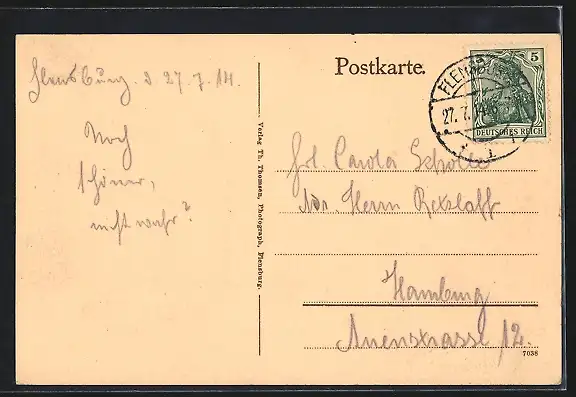 Flensburg. d 27.7.14.
Noch
schöner,
nicht wahr?
Verlag Th. Thomsen, Photograph, Flensburg.
Postkarte.
FLENSBURG
27.7.14
5
DEUTSCHES REICH
Frl. Carola Scholle
Adr. Herrn Retzlaff
Hamburg
Auenstrasse 12.
7038